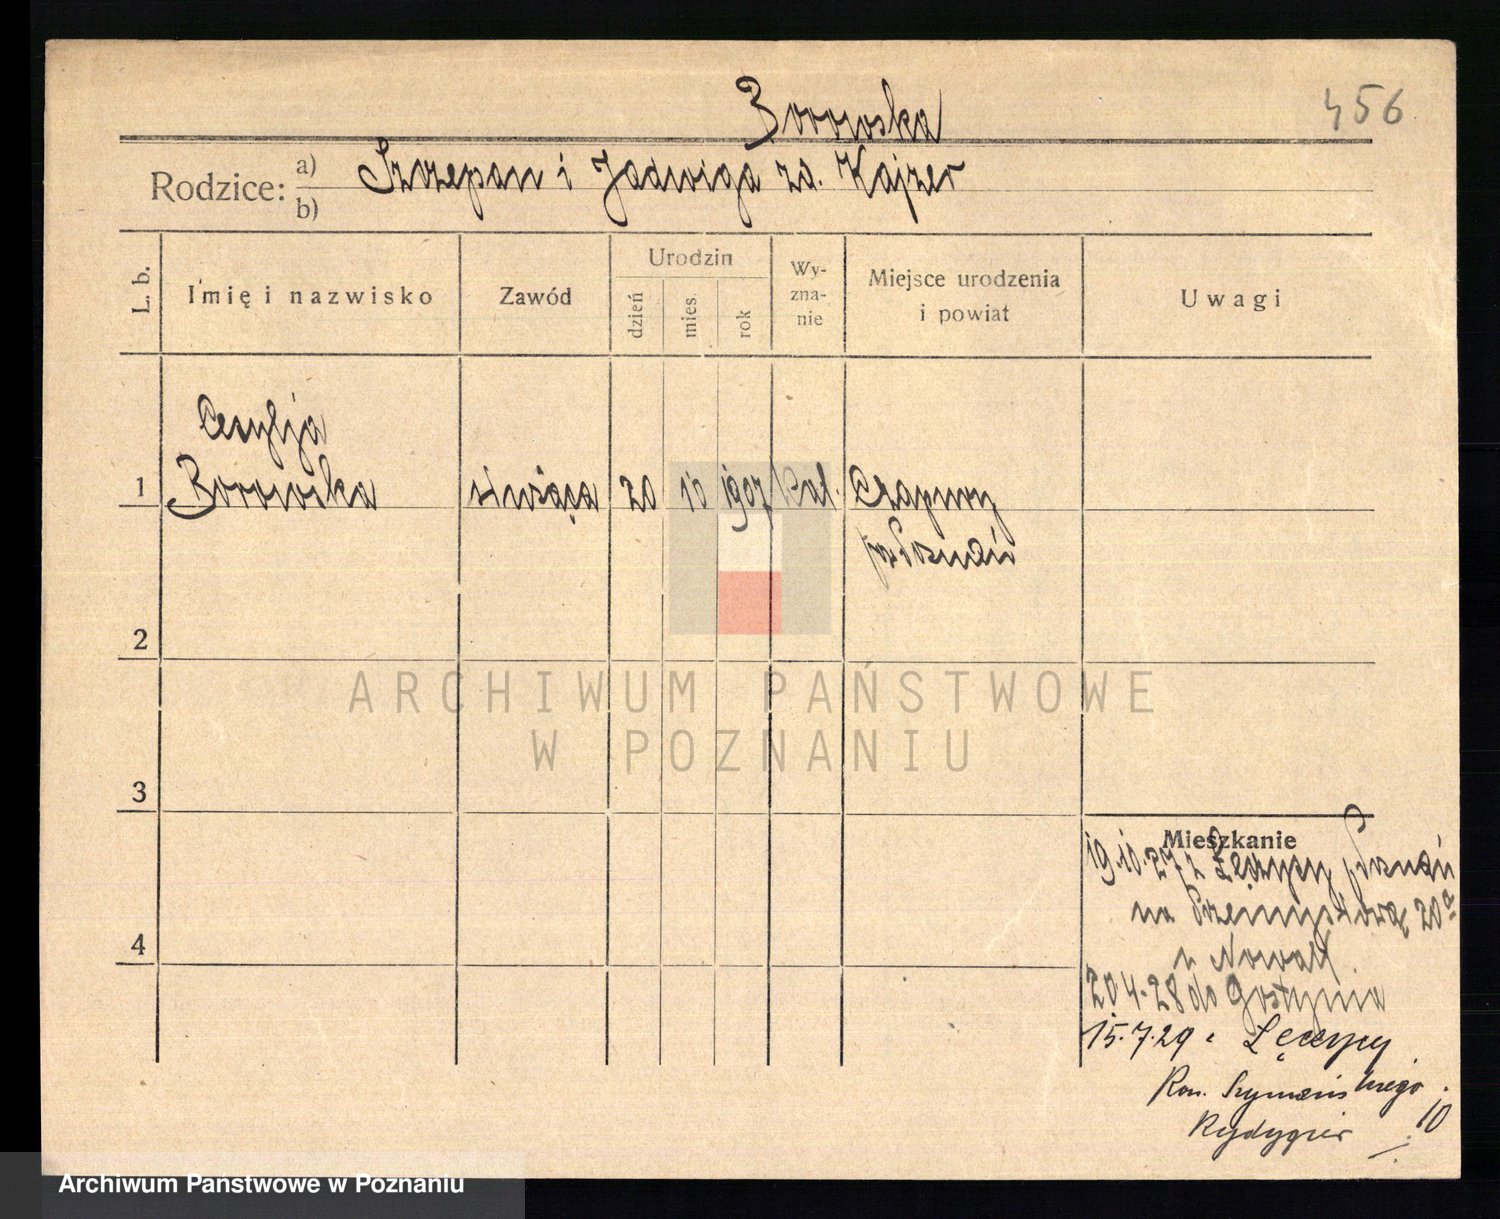 Borowska
456
Rodzice: a) Szczepan i Jadwiga zd. Kajzer
b)
L. b.
Imię i nazwisko
Zawód
Urodzin
dzień
mies.
rok
Wy-
zna-
nie
Miejsce urodzenia
i powiat
Uwagi
Cecylja
1 Borowska służąca 20 10 1907 Kat. Czapury
Poznań
2
3
4
ARCHIWUM PAŃSTWOWE
W POZNANIU
Mieszkanie
19.10.27 z Łęczycy Poznań
na Przemysłową 20a
u Nowak
20 4.28 do Gostynia
15.7.29 z Łęczycy
Rom. Szymańskiego 10
Rydygier
Archiwum Państwowe w Poznaniu